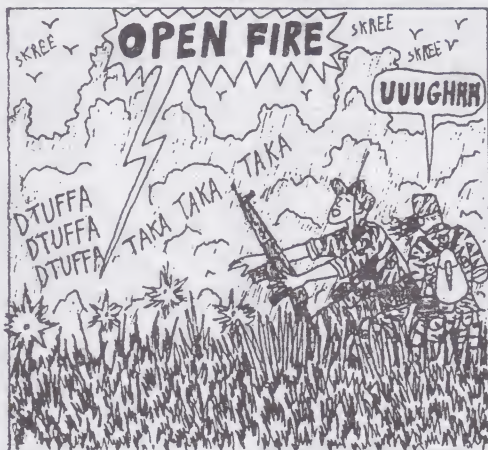 SKREE
OPEN FIRE
SKREE
SKREE
UUUGHHH
DTUFFA
DTUFFA
DTUFFA
TAKA TAKA TAKA